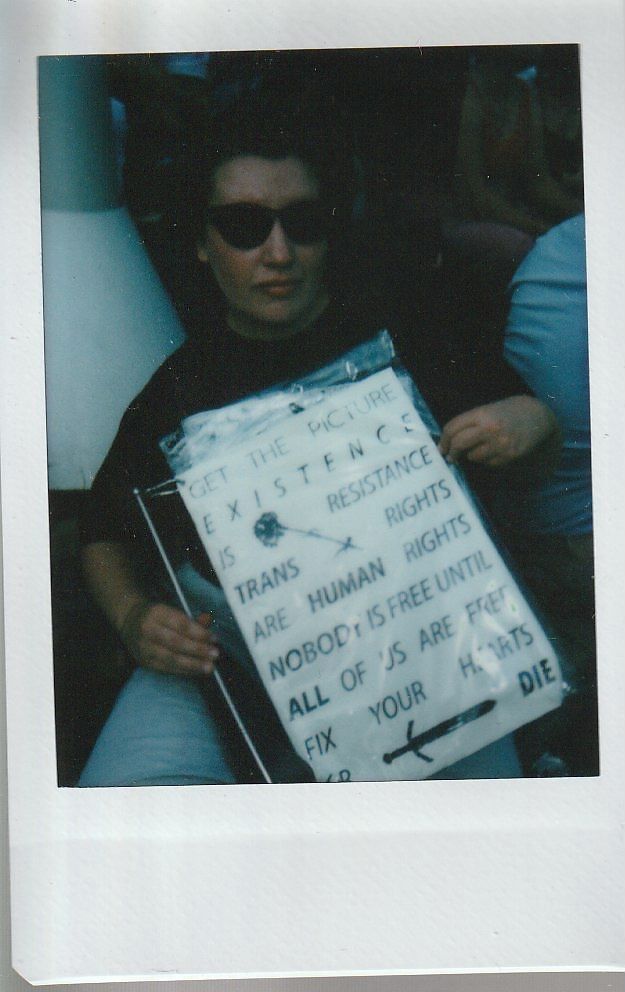 GET THE PICTURE
EXISTENCE
IS RESISTANCE
TRANS RIGHTS
ARE HUMAN RIGHTS
NOBODY IS FREE UNTIL
ALL OF US ARE FREE
FIX YOUR HEARTS
OR DIE